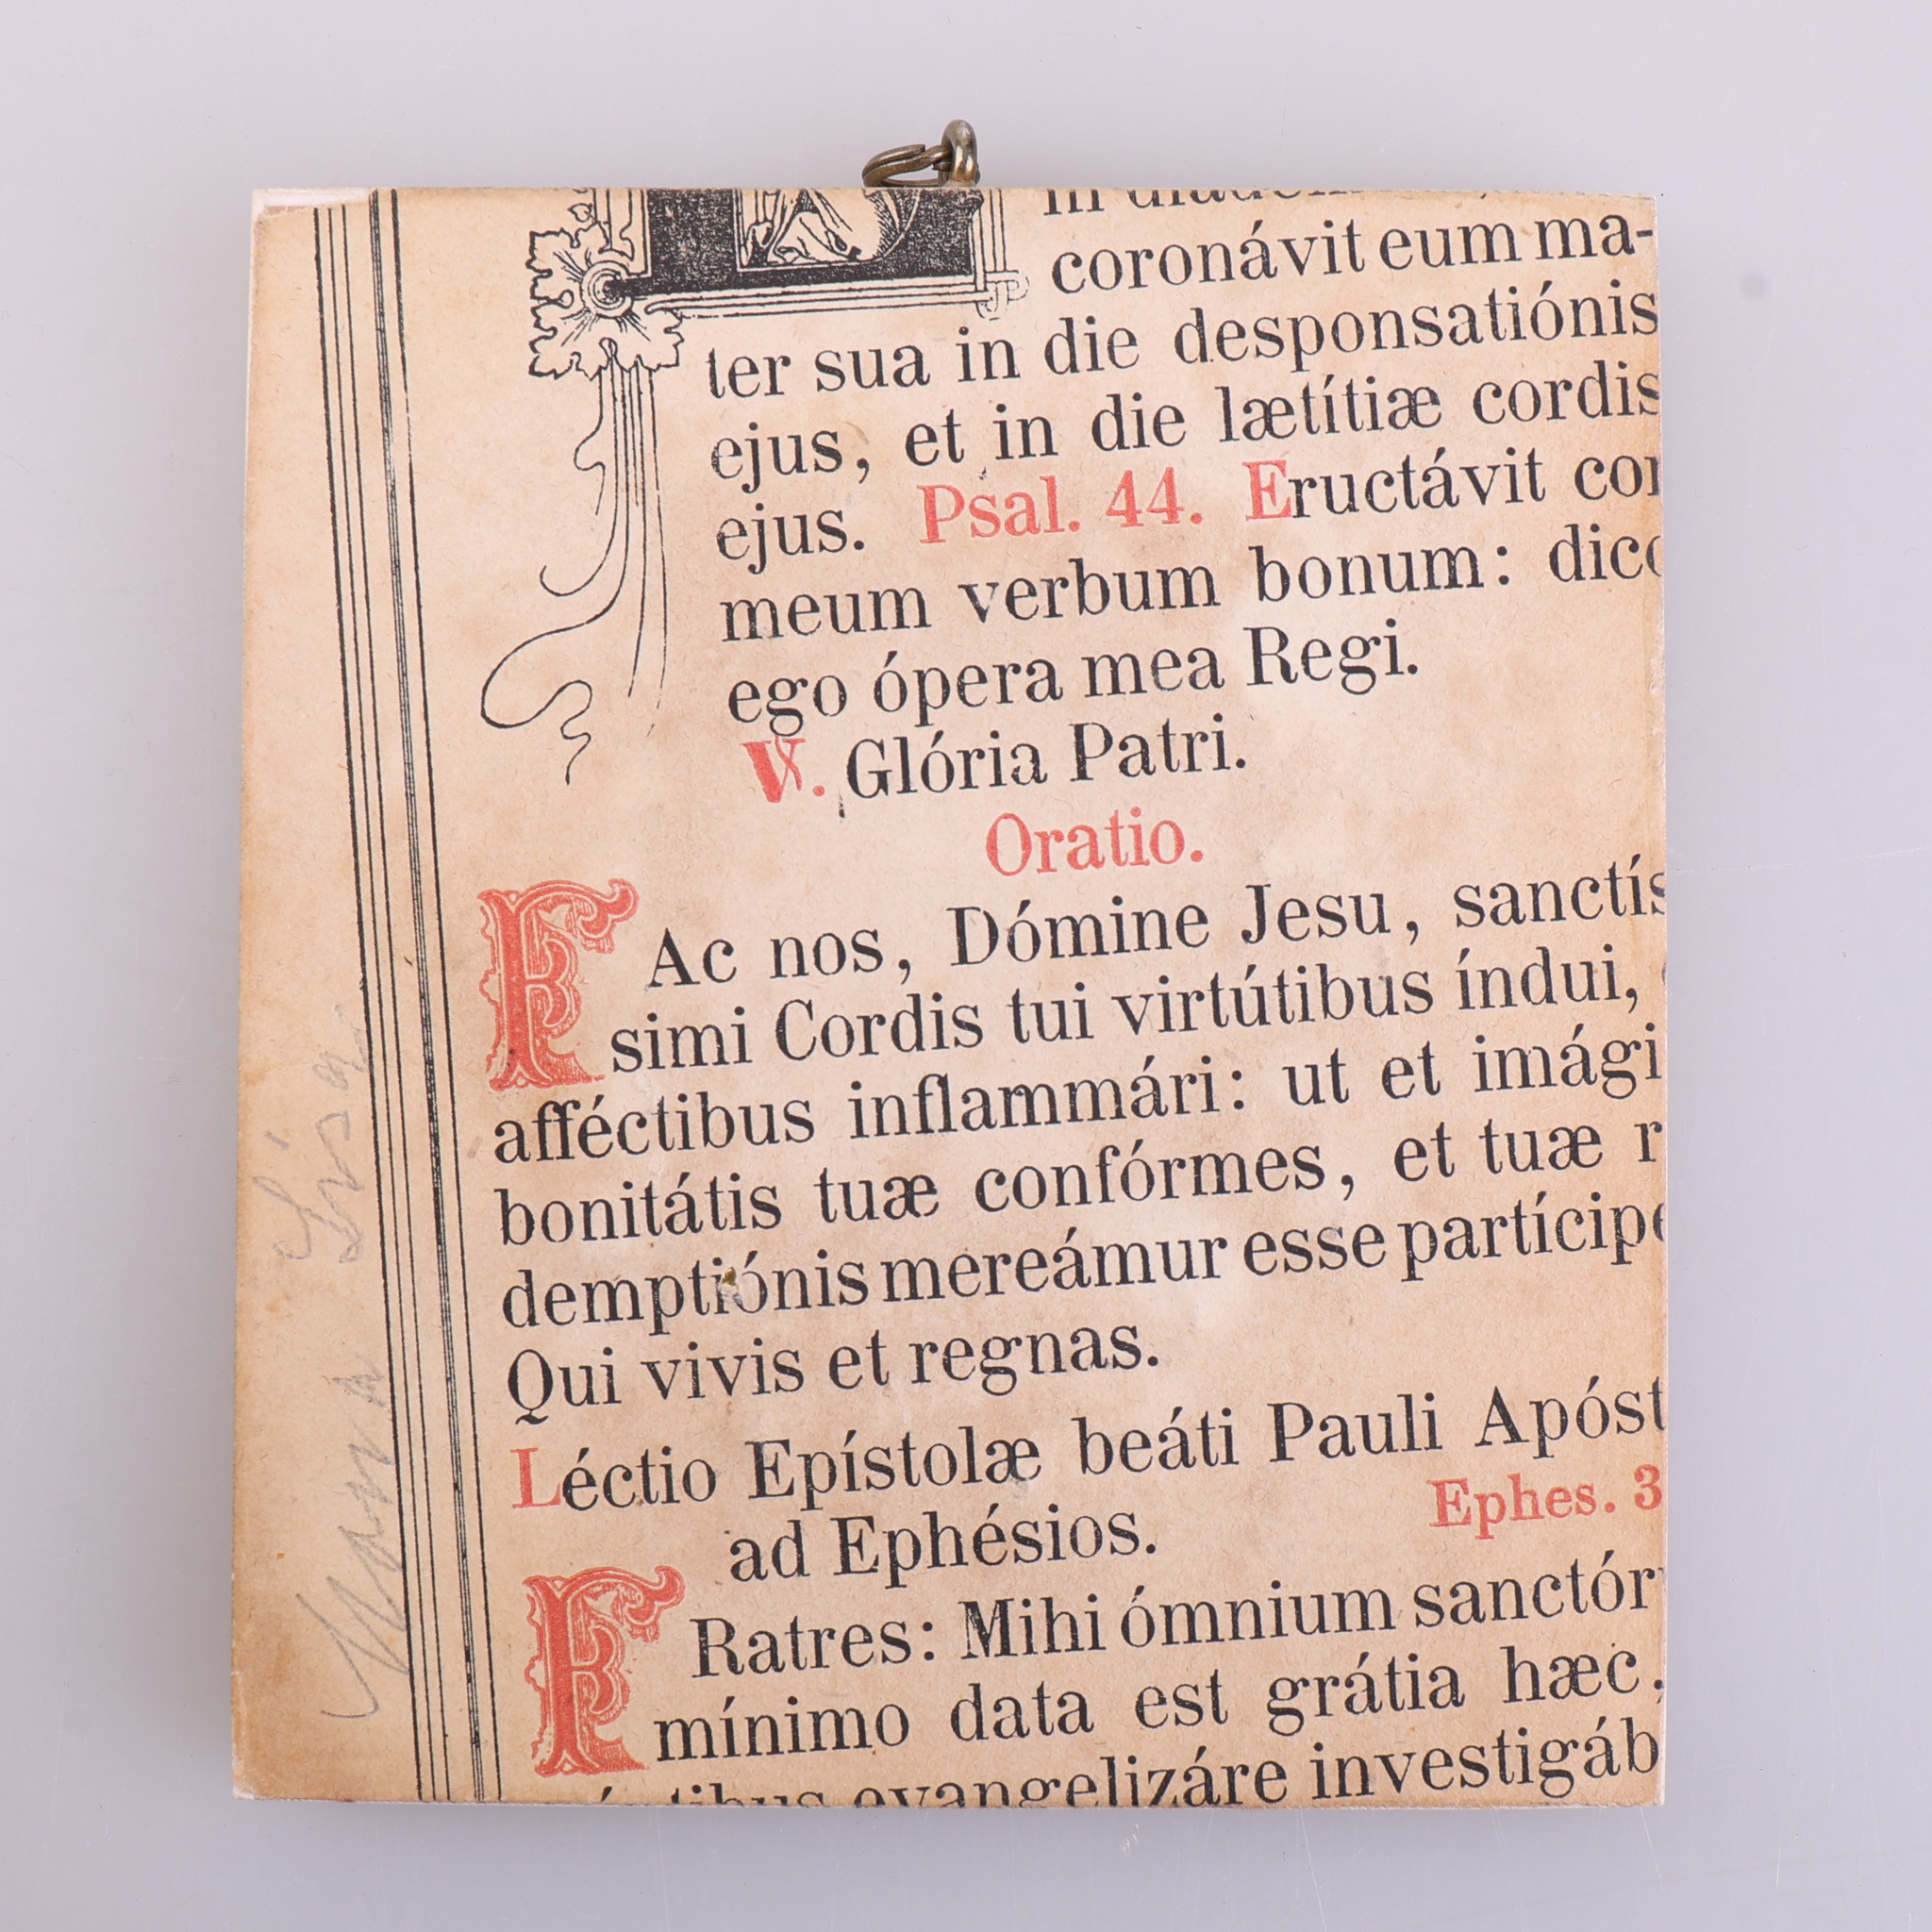 coronávit eum ma-
ter sua in die desponsatiónis
ejus, et in die lætítiæ cordis
ejus. Psal. 44. Eructávit cor
meum verbum bonum: dico
ego ópera mea Regi.
℣. Glória Patri.
Oratio.
FAc nos, Dómine Jesu, sanctís
simi Cordis tui virtútibus índui,
afféctibus inflammári: ut et imági
bonitátis tuæ confórmes, et tuæ r
demptiónis mereámur esse partícipe
Qui vivis et regnas.
Léctio Epístolæ beáti Pauli Apóst
ad Ephésios. Ephes. 3
FRatres: Mihi ómnium sanctór
mínimo data est grátia hæc,
evangelizáre investigáb